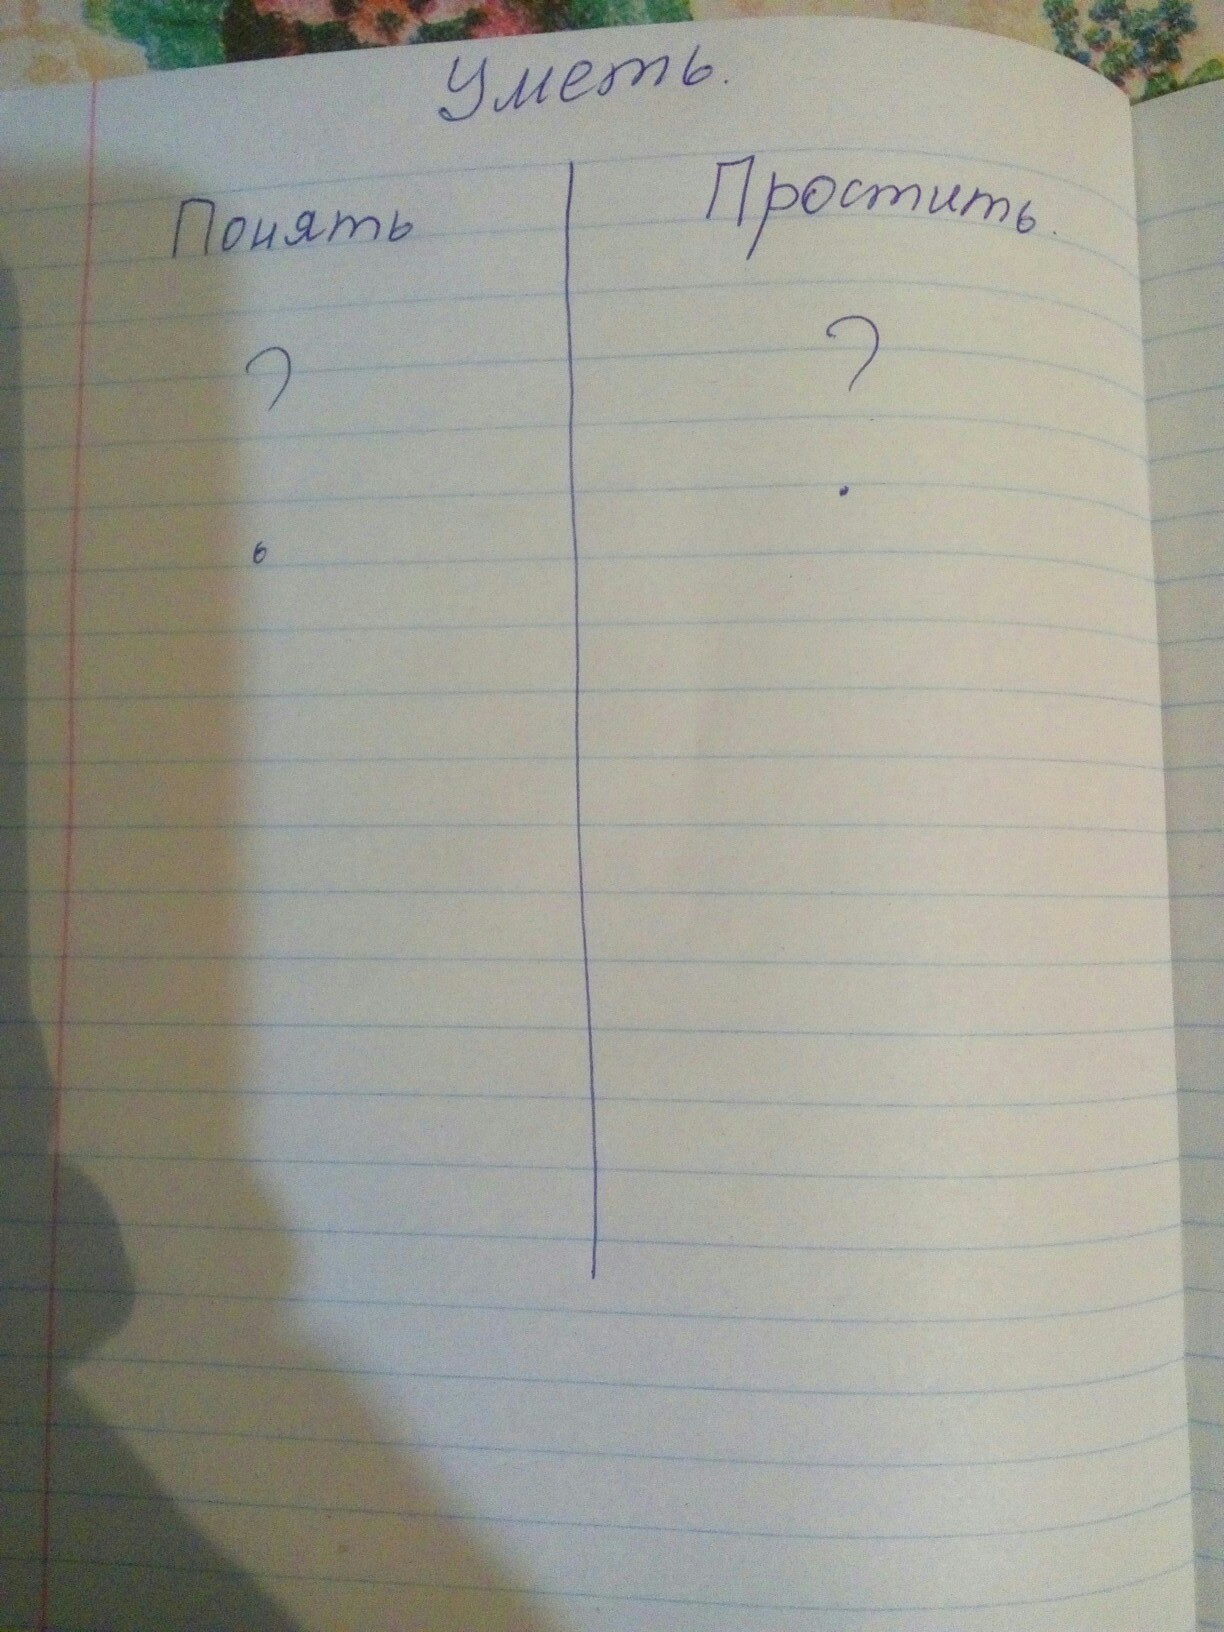 Уметь.
Понять Простить.
? ?